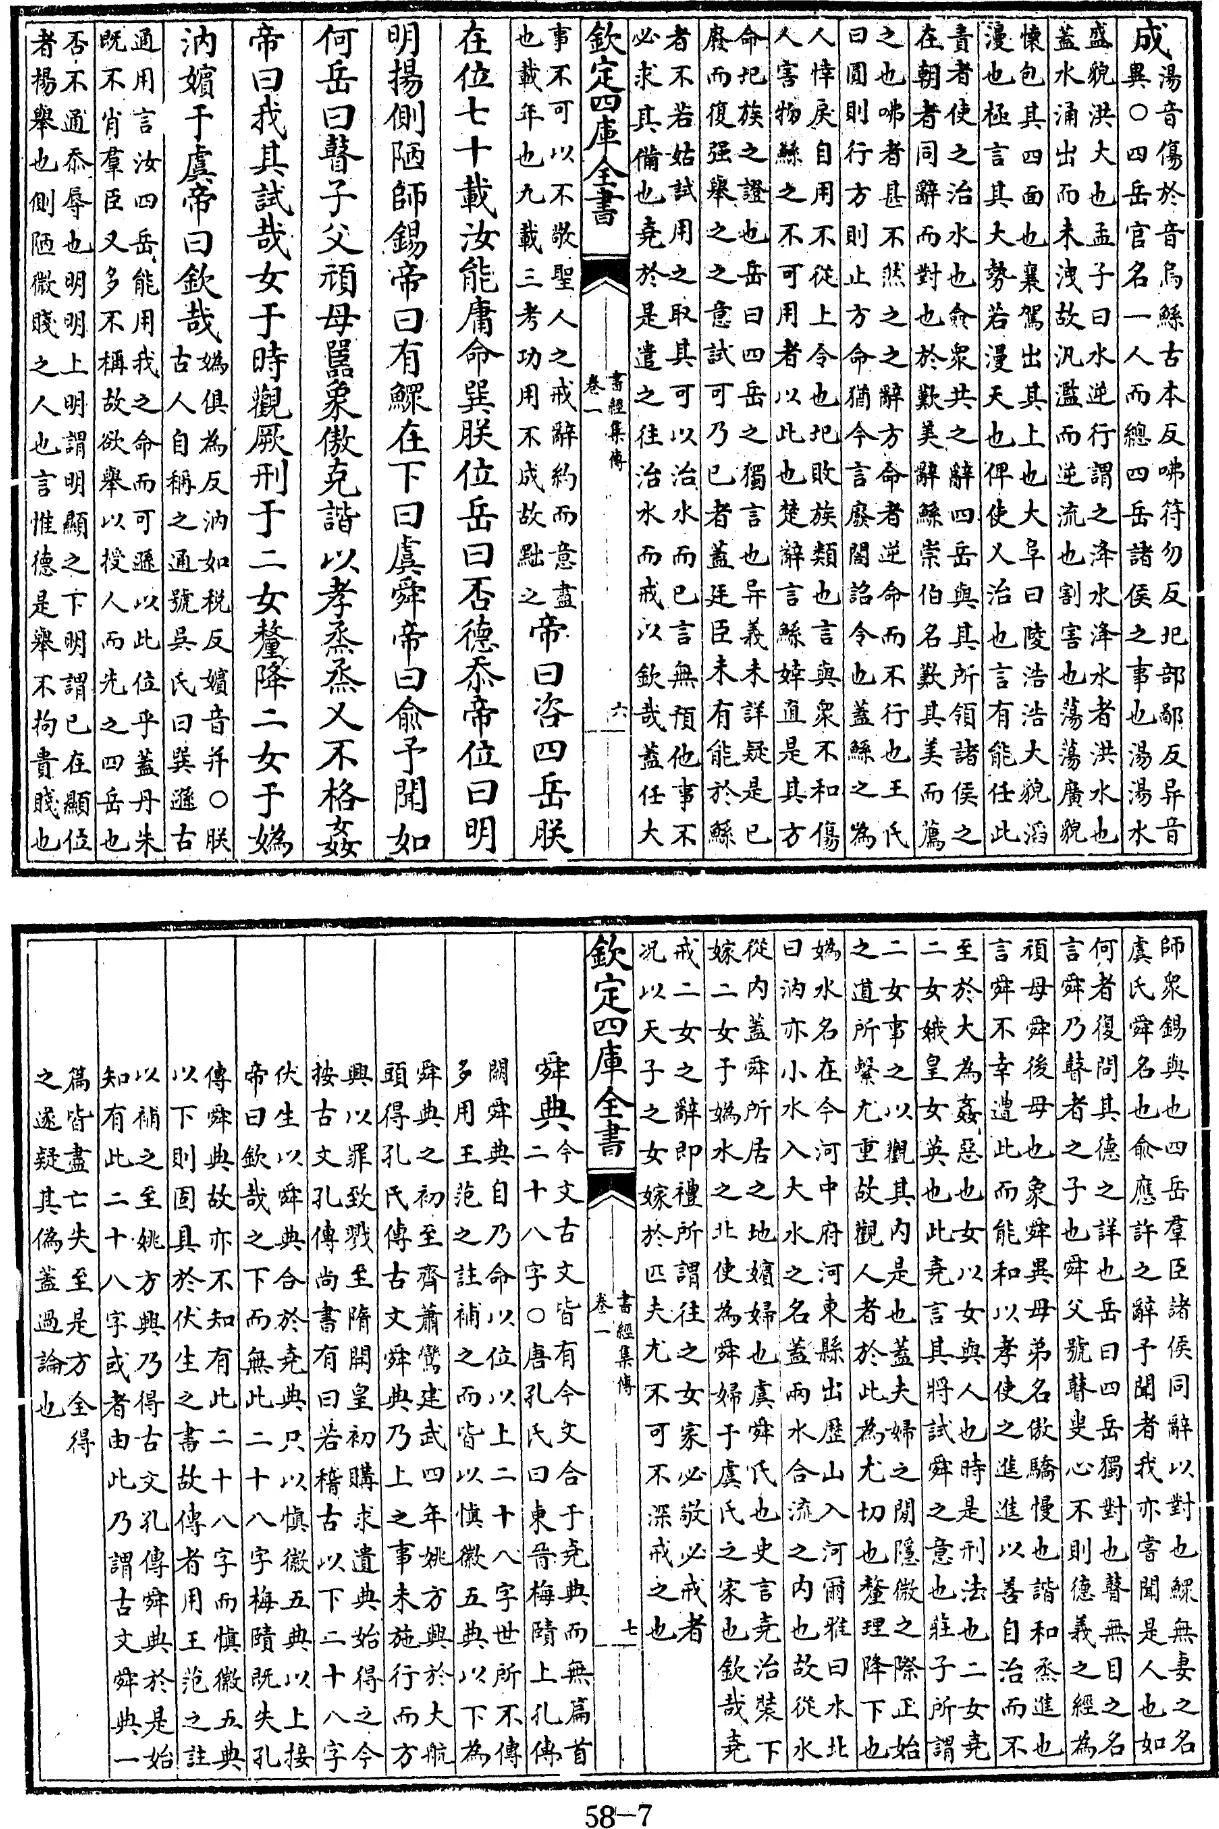 成
湯音傷於音烏鯀古本反咈符勿反圮部鄙反异音
異○四岳官名一人而總四岳諸侯之事也湯湯水
盛貌洪大也孟子曰水逆行謂之洚水洚水者洪水也
蓋水涌出而未洩故汎濫而逆流也割害也蕩蕩廣貌
懷包其四面也襄駕出其上也大阜曰陵浩浩大貌滔
漫也極言其大勢若漫天也俾使乂治也言有能任此
責者使之治水也僉衆共之辭四岳與其所領諸侯之
在朝者同辭而對也於歎美辭鯀崇伯名歎其美而薦
之也咈者甚不然之之辭方命者逆命而不行也王氏
曰圓則行方則止方命猶今言廢閣詔令也蓋鯀之為
人悻戾自用不從上令也圮敗族類也言與衆不和傷
人害物鯀之不可用者以此也楚辭言鯀婞直是其方
命圮族之證也岳曰四岳之獨言也异義未詳疑是已
廢而復强舉之之意試可乃已者蓋廷臣未有能於鯀
者不若姑試用之取其可以治水而已言無預他事不
必求其備也堯於是遣之往治水而戒以欽哉蓋任大
欽定四庫全書
書經集傳
卷一
六
事不可以不敬聖人之戒辭約而意盡
也載年也九載三考功用不成故黜之
帝曰咨四岳朕
在位七十載汝能庸命巽朕位岳曰否德忝帝位曰明
明揚側陋師錫帝曰有鰥在下曰虞舜帝曰俞予聞如
何岳曰瞽子父頑母嚚象傲克諧以孝烝烝乂不格姦
帝曰我其試哉女于時觀厥刑于二女釐降二女于媯
汭嬪于虞帝曰欽哉
媯俱為反汭如税反嬪音并○朕
古人自稱之通號吳氏曰巽遜古
通用言汝四岳能用我之命而可遜以此位乎蓋丹朱
既不肖羣臣又多不稱故欲舉以授人而先之四岳也
否不通忝辱也明明上明謂明顯之下明謂已在顯位
者揚舉也側陋微賤之人也言惟德是舉不拘貴賤也
師衆錫與也四岳羣臣諸侯同辭以對也鰥無妻之名
虞氏舜名也俞應許之辭予聞者我亦嘗聞是人也如
何者復問其德之詳也岳曰四岳獨對也瞽無目之名
言舜乃瞽者之子也舜父號瞽叟心不則德義之經為
頑母舜後母也象舜異母弟名傲驕慢也諧和烝進也
言舜不幸遭此而能和以孝使之進進以善自治而不
至於大為姦惡也女以女與人也時是刑法也二女堯
二女娥皇女英也此堯言其將試舜之意也莊子所謂
二女事之以觀其内是也蓋夫婦之閒隱微之際正始
之道所繫尤重故觀人者於此為尤切也釐理降下也
媯水名在今河中府河東縣出歷山入河爾雅曰水北
曰汭亦小水入大水之名蓋兩水合流之内也故從水
從内蓋舜所居之地嬪婦也虞舜氏也史言堯治裝下
嫁二女于媯水之北使為舜婦于虞氏之家也欽哉堯
戒二女之辭即禮所謂往之女家必敬必戒者
況以天子之女嫁於匹夫尤不可不深戒之也
欽定四庫全書
書經集傳
卷一
七
舜典
今文古文皆有今文合于堯典而無篇首
二十八字○唐孔氏曰東晉梅賾上孔傳
闕舜典自乃命以位以上二十八字世所不傳
多用王范之註補之而皆以慎徽五典以下為
舜典之初至齊蕭鸞建武四年姚方興於大航
頭得孔氏傳古文舜典乃上之事未施行而方
興以罪致戮至隋開皇初購求遺典始得之今
按古文孔傳尚書有曰若稽古以下二十八字
伏生以舜典合於堯典只以慎徽五典以上接
帝曰欽哉之下而無此二十八字梅賾既失孔
傳舜典故亦不知有此二十八字而慎徽五典
以下則固具於伏生之書故傳者用王范之註
以補之至姚方興乃得古文孔傳舜典於是始
知有此二十八字或者由此乃謂古文舜典一
篇皆盡亡失至是方全得
之遂疑其偽蓋過論也
58-7